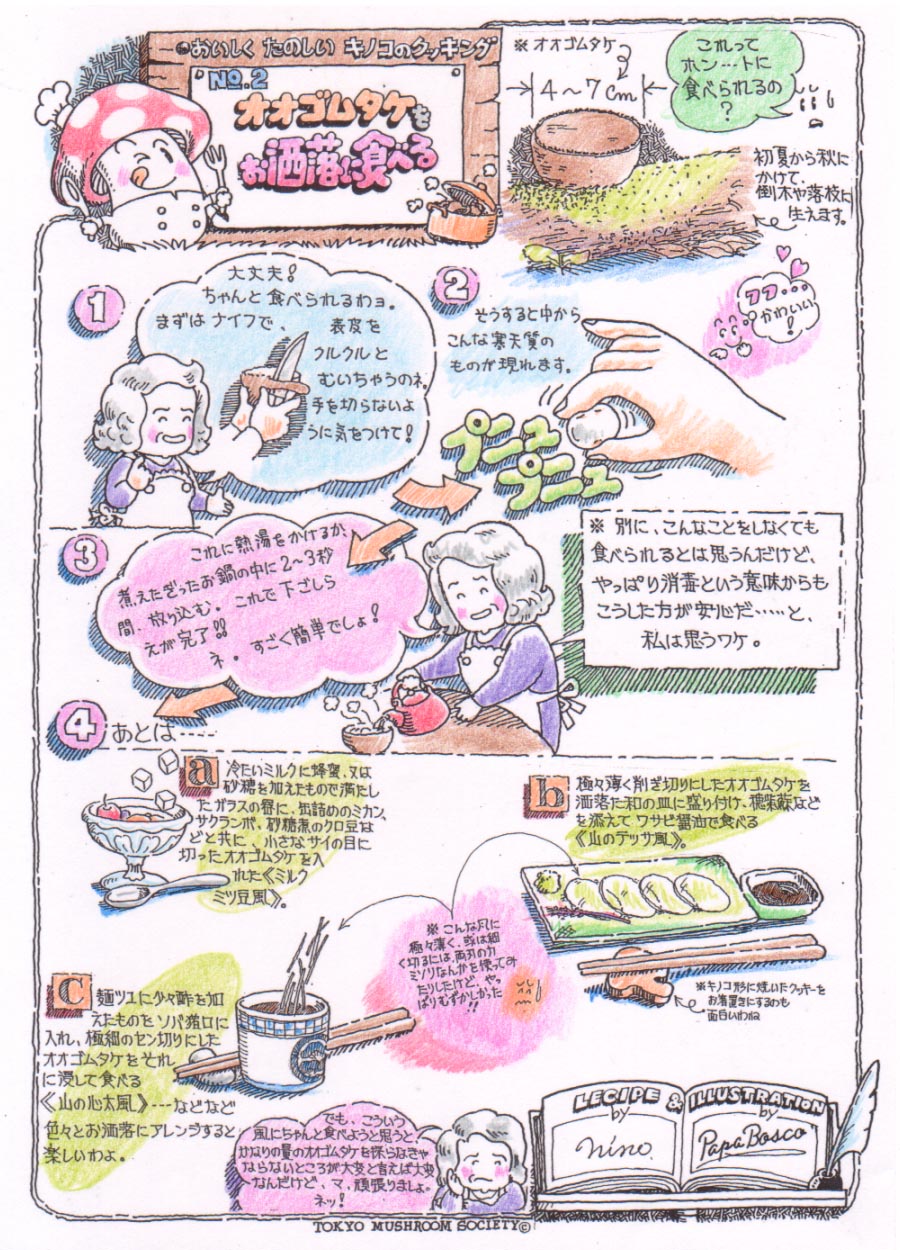 おいしく たのしい キノコのクッキング
No.2
オオゴムタケを
お洒落に食べる
※オオゴムタケ
4~7cm
これって
ホン…トに
食べられるの
?
初夏から秋に
かけて、
倒木や落枝に
生えます。
1
大丈夫!
ちゃんと食べられるわョ。
まずはナイフで、
表皮を
クルクルと
むいちゃうのネ。
手を切らないよ
うに気をつけて!
2
そうすると中から
こんな寒天質の
ものが現れます。
フフ…
かわいい
!
プニュ
プニュ
3
これに熱湯をかけるか、
煮えたぎったお鍋の中に2~3秒
間、放り込む。これで下ごしら
えが完了!!
ネ。すごく簡単でしょ!
※ 別に、こんなことをしなくても
食べられるとは思うんだけど、
やっぱり消毒という意味からも
こうした方が安心だ……と、
私は思うワケ。
4 あとは……
a 冷たいミルクに蜂蜜、又は
砂糖を加えたもので満たし
たガラスの器に、缶詰めのミカン、
サクランボ、砂糖煮のクロ豆な
どと共に、小さなサイの目に
切ったオオゴムタケを入
れた《ミルク
ミツ豆風》。
b 極々薄く削ぎ切りにしたオオゴムタケを
洒落た和の皿に盛り付け、穂紫蘇など
を添えてワサビ醤油で食べる
《山のテッサ風》。
※こんな風に
極々薄く、或は細
く切るには、両刃のカ
ミソリなんかを使ってみ
たりしたけど、やっ
ぱりむずかしかった
!!
※キノコ形に焼いたクッキーを
お箸置きにするのも
面白いわね
c 麺ツユに少々酢を加
えたものをソバ猪口に
入れ、極細のセン切りにした
オオゴムタケをそれ
に浸して食べる
《山の心太風》---などなど
色々とお洒落にアレンジすると
楽しいわよ。
でも、こういう
風にちゃんと食べようと思うと、
かなりの量のオオゴムタケを採らなきゃ
ならないところが大変と言えば大変
なんだけど、マ、頑張りましょ。
ネッ!
LECIPE & ILLUSTRATION
by by
nino. Papa Bosco
TOKYO MUSHROOM SOCIETY©